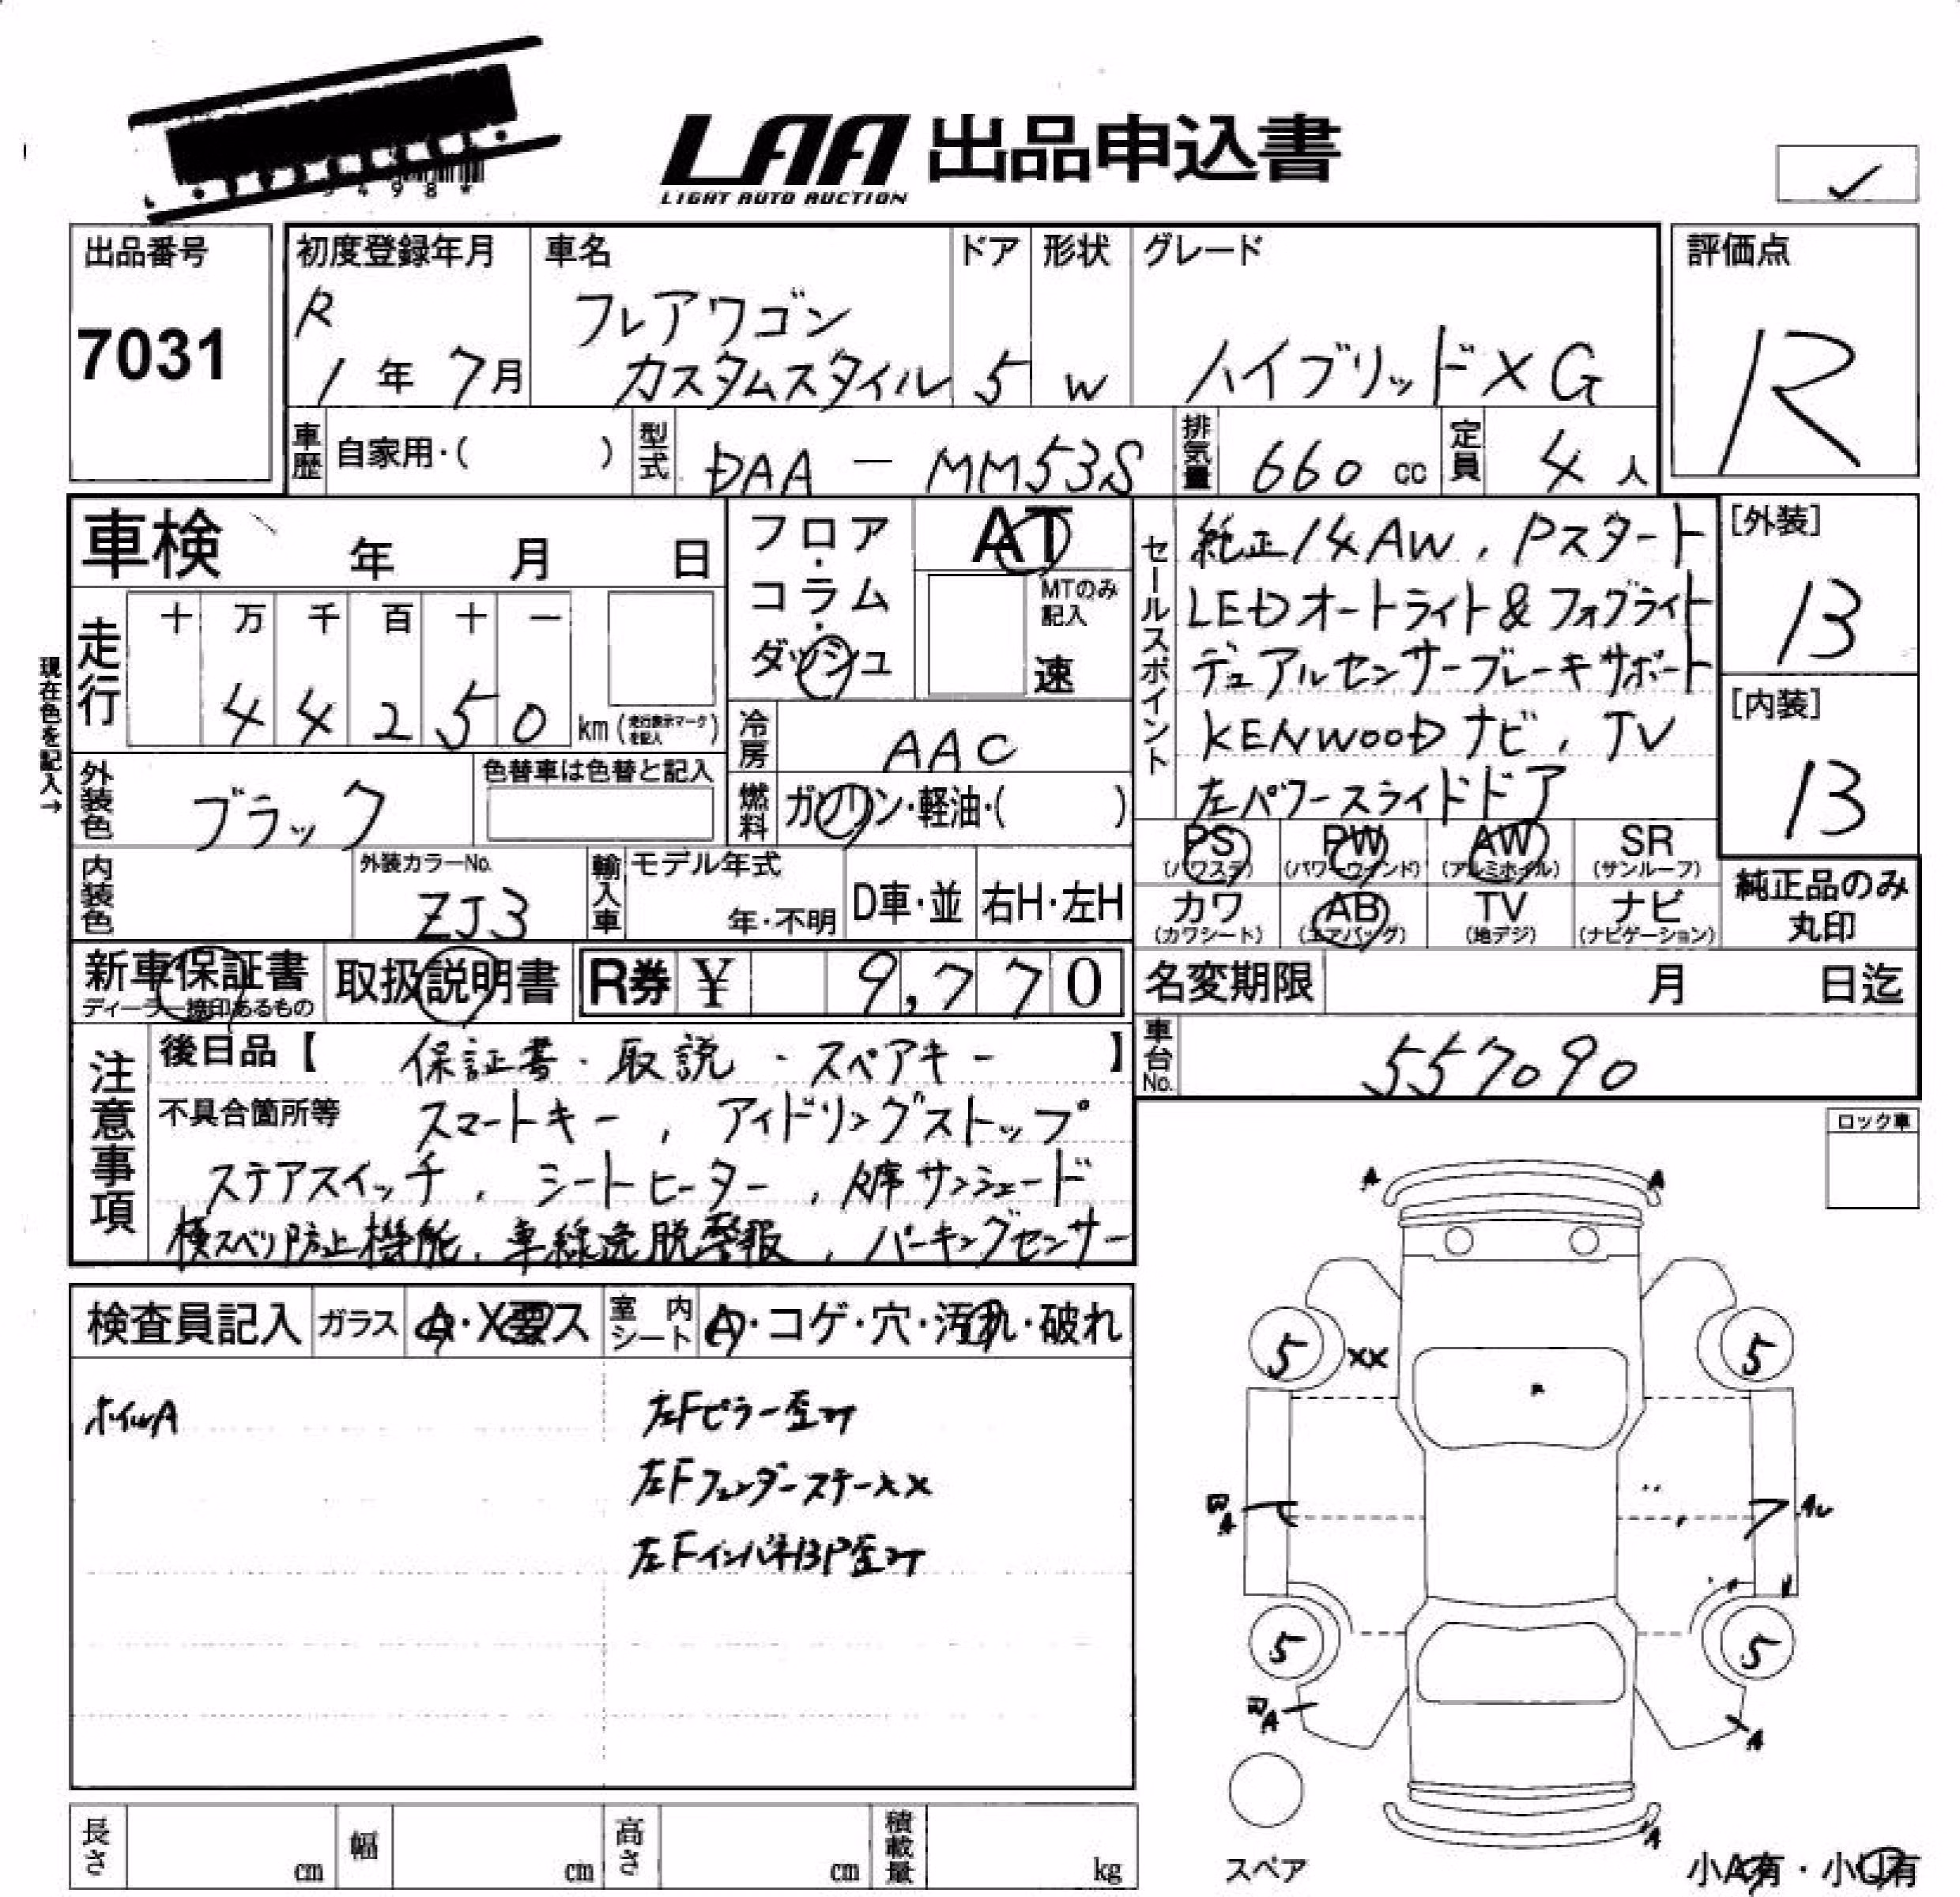 LAA 出品申込書
LIGHT AUTO AUCTION
出品番号
7031
初度登録年月
R
1年 7月
車名
フレアワゴン
カスタムスタイル
ドア
5
形状
W
グレード
ハイブリッドXG
評価点
R
車歴 自家用・( )
型式 DAA - MM53S
排気量 660 cc
定員 4 人
車検 年 月 日
現在色を記入→
走行
十 万 千 百 十 一
4 4 2 5 0 km (走行表示マークを記入)
フロア・コラム・ダッシュ
AT
MTのみ記入
速
冷房 AAC
燃料 ガソリン・軽油・( )
外装色 ブラック
色替車は色替と記入
内装色
外装カラーNo.
ZJ3
輸入車
モデル年式
年・不明
D車・並
右H・左H
セールスポイント
純正14AW, Pスタート
LEDオートライト&フォグライト
デュアルセンサーブレーキサポート
KENWOODナビ, TV
左パワースライドドア
[外装]
13
[内装]
13
PS (パワステ)
PW (パワーウインド)
AW (アルミホイル)
SR (サンルーフ)
カワ (カワシート)
AB (エアバッグ)
TV (地デジ)
ナビ (ナビゲーション)
純正品のみ
丸印
新車保証書
ディーラー捺印あるもの
取扱説明書
R券 ¥ 9,770
名変期限 月 日迄
車台No. 557090
注意事項
後日品【 保証書・取説・スペアキー 】
不具合箇所等 スマートキー, アイドリングストップ
ステアスイッチ, シートヒーター, 後席サンシェード
横スベリ防止機能, 車線逸脱警報, パーキングセンサー
ロック車
検査員記入
ガラス A・X要・ス
室内シート A・コゲ・穴・汚れ・破れ
ホイルA
左Fピラー歪み
左Fフェンダーステー××
左FインパネBP歪み
A A
5 XX 5
A
5 5
A A
A
スペア
小A有・小U有
長さ cm
幅 cm
高さ cm
積載量 kg